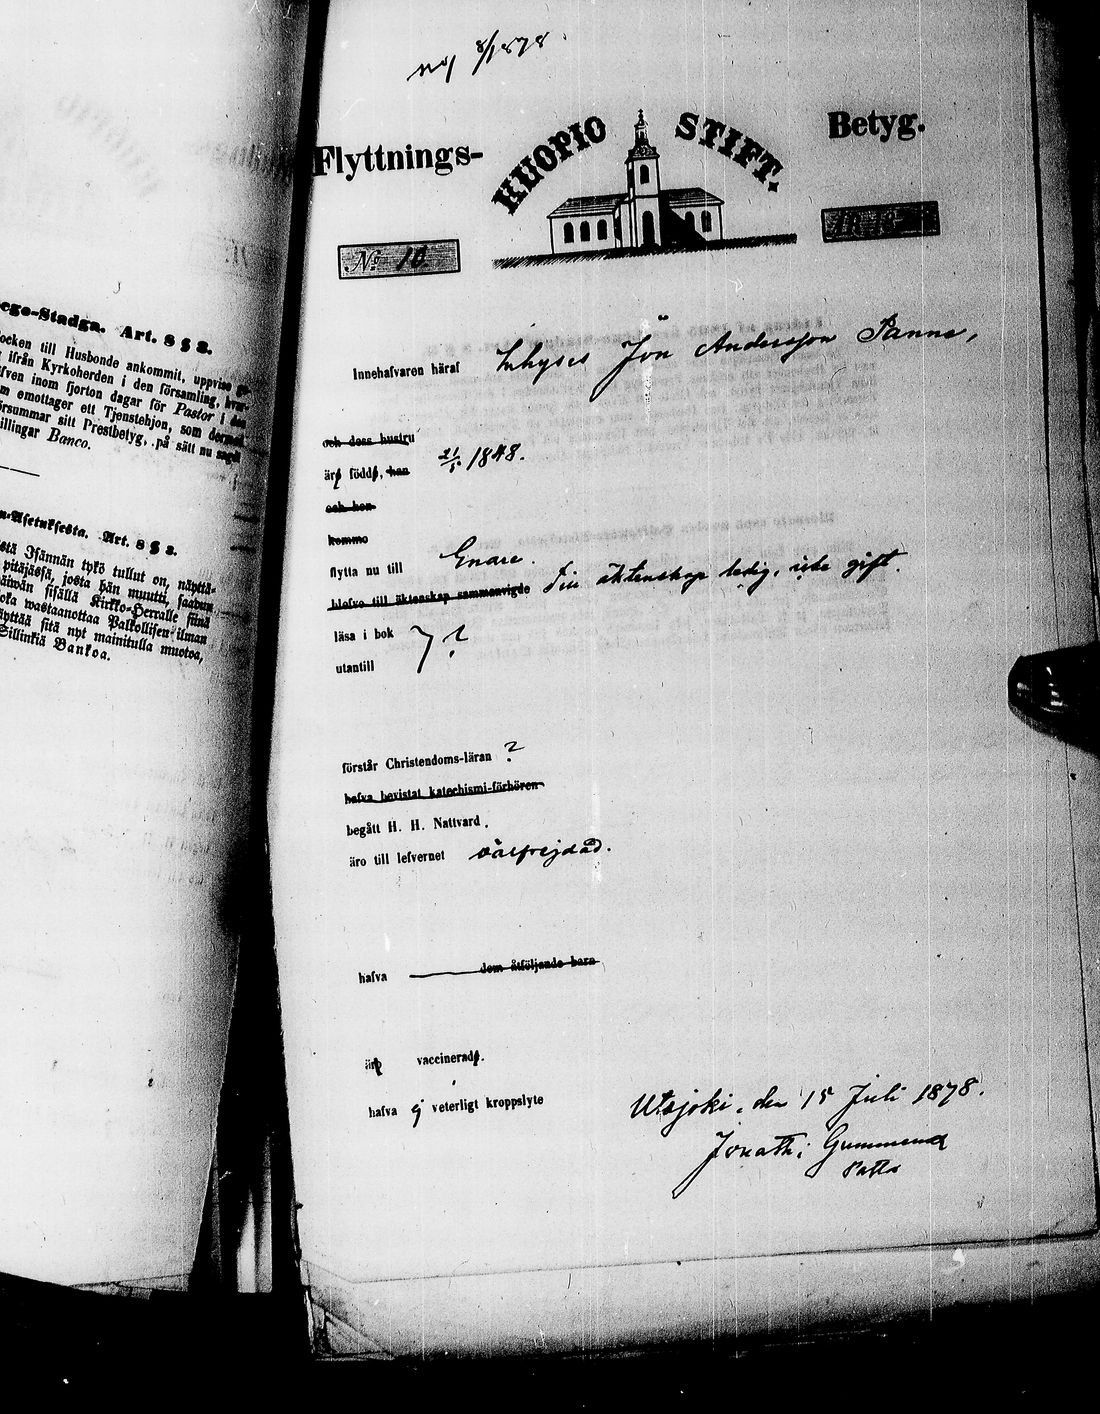 ege-Stadga. Art. 8 § 2.
ocken till Husbonde ankommit, uppvise
ifrån Kyrkoherden i den församling,
fven inom fjorton dagar för Pastor i den
m emottager ett Tjenstehjon, som
rsummar sitt Prestbetyg, på sätt nu sagdt
illingar Banco.
n-Asetuksesta. Art. 8 § 2.
stä Isännän tykö tullut on, näyttä-
pitäjässä, josta hän muutti, saatun
äiwän sisällä Kirkko-Herralle siinä
oka wastaanottaa Palkollisen ilman
äyttää sitä nyt mainitulla muotoa,
Sillinkiä Bankoa.
8/1878.
Flyttnings- KUOPIO STIFT. Betyg.
№ 10.
Innehafvaren häraf Jön Andersson Panne,
och dess hustru
äro födde, han 21/5 1848.
och hon
komme
flytta nu till Enare.
blefvo till äktenskap sammanvigde Till äktenskap ledig, icke gift.
läsa i bok ?
utantill
förstår Christendoms-läran ?
hafva bevistat katechismi-förhören
begått H. H. Nattvard.
äro till lefvernet välfrejdad.
hafva dem åtföljande barn
äro vaccinerade.
hafva ej veterligt kroppslyte
Utsjoki, den 15 Juli 1878.